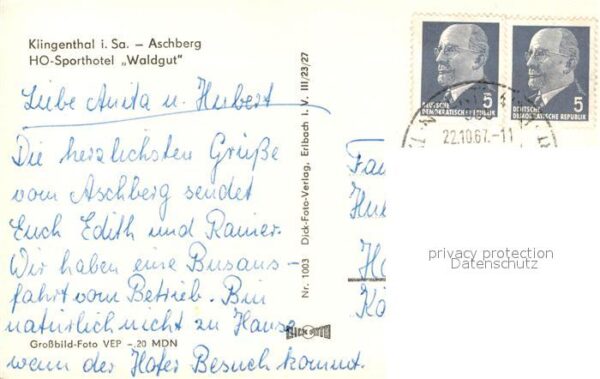 Klingenthal i. Sa. – Aschberg
HO-Sporthotel „Waldgut"
Liebe Anita u. Hubert
Die herzlichsten Grüße
vom Aschberg sendet
Euch Edith und Rainer.
Wir haben eine Busaus-
fahrt vom Betrieb. Bin
natürlich nicht zu Hause
wenn der Hofer Besuch kommt.
Großbild-Foto VEP -.20 MDN
Nr. 1003 Dick-Foto-Verlag, Erlbach i. V. III/23/27
DICK FOTO
5
DEUTSCHE
DEMOKRATISCHE REPUBLIK
5
DEUTSCHE
DEMOKRATISCHE REPUBLIK
22.10.67.-11
privacy protection
Datenschutz